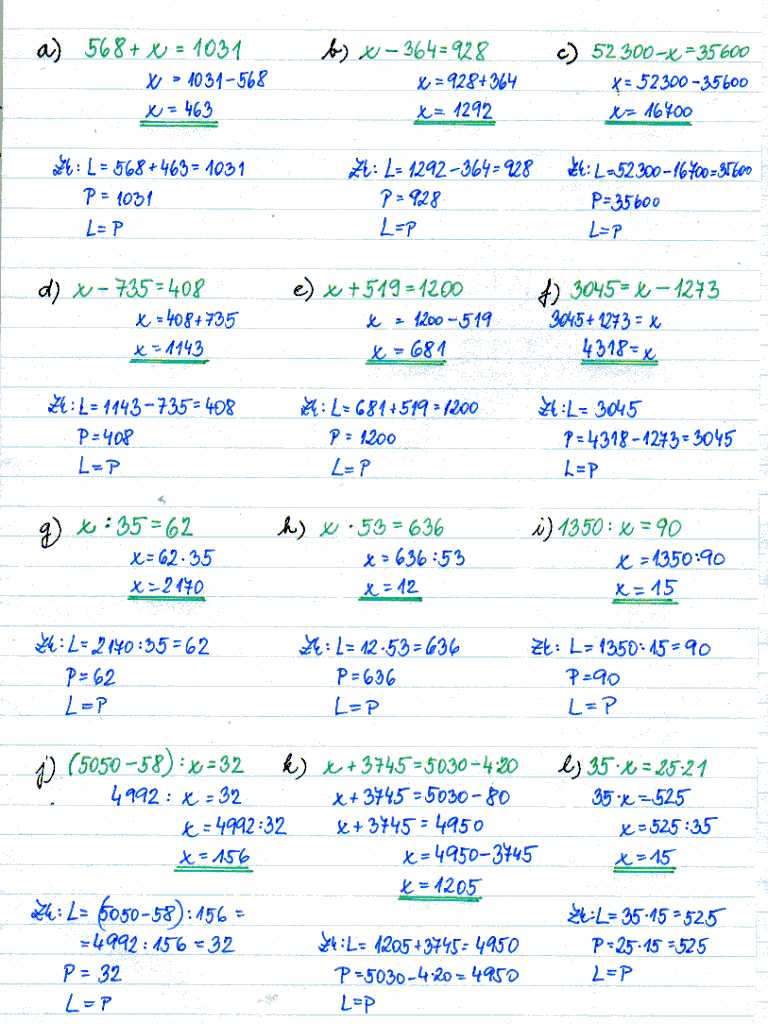 a) 568 + x = 1031
x = 1031 - 568
x = 463
Zk: L = 568 + 463 = 1031
P = 1031
L = P
b) x - 364 = 928
x = 928 + 364
x = 1292
Zk: L = 1292 - 364 = 928
P = 928
L = P
c) 52 300 - x = 35600
x = 52300 - 35600
x = 16700
Zk: L = 52 300 - 16700 = 35600
P = 35600
L = P
d) x - 735 = 408
x = 408 + 735
x = 1143
Zk: L = 1143 - 735 = 408
P = 408
L = P
e) x + 519 = 1200
x = 1200 - 519
x = 681
Zk: L = 681 + 519 = 1200
P = 1200
L = P
f) 3045 = x - 1273
3045 + 1273 = x
4318 = x
Zk: L = 3045
P = 4318 - 1273 = 3045
L = P
g) x : 35 = 62
x = 62 · 35
x = 2170
Zk: L = 2170 : 35 = 62
P = 62
L = P
h) x · 53 = 636
x = 636 : 53
x = 12
Zk: L = 12 · 53 = 636
P = 636
L = P
i) 1350 : x = 90
x = 1350 : 90
x = 15
Zk: L = 1350 : 15 = 90
P = 90
L = P
j) (5050 - 58) : x = 32
4992 : x = 32
x = 4992 : 32
x = 156
Zk: L = (5050 - 58) : 156 =
= 4992 : 156 = 32
P = 32
L = P
k) x + 3745 = 5030 - 4·20
x + 3745 = 5030 - 80
x + 3745 = 4950
x = 4950 - 3745
x = 1205
Zk: L = 1205 + 3745 = 4950
P = 5030 - 4·20 = 4950
L = P
l) 35 · x = 25 · 21
35 · x = 525
x = 525 : 35
x = 15
Zk: L = 35 · 15 = 525
P = 25 · 15 = 525
L = P